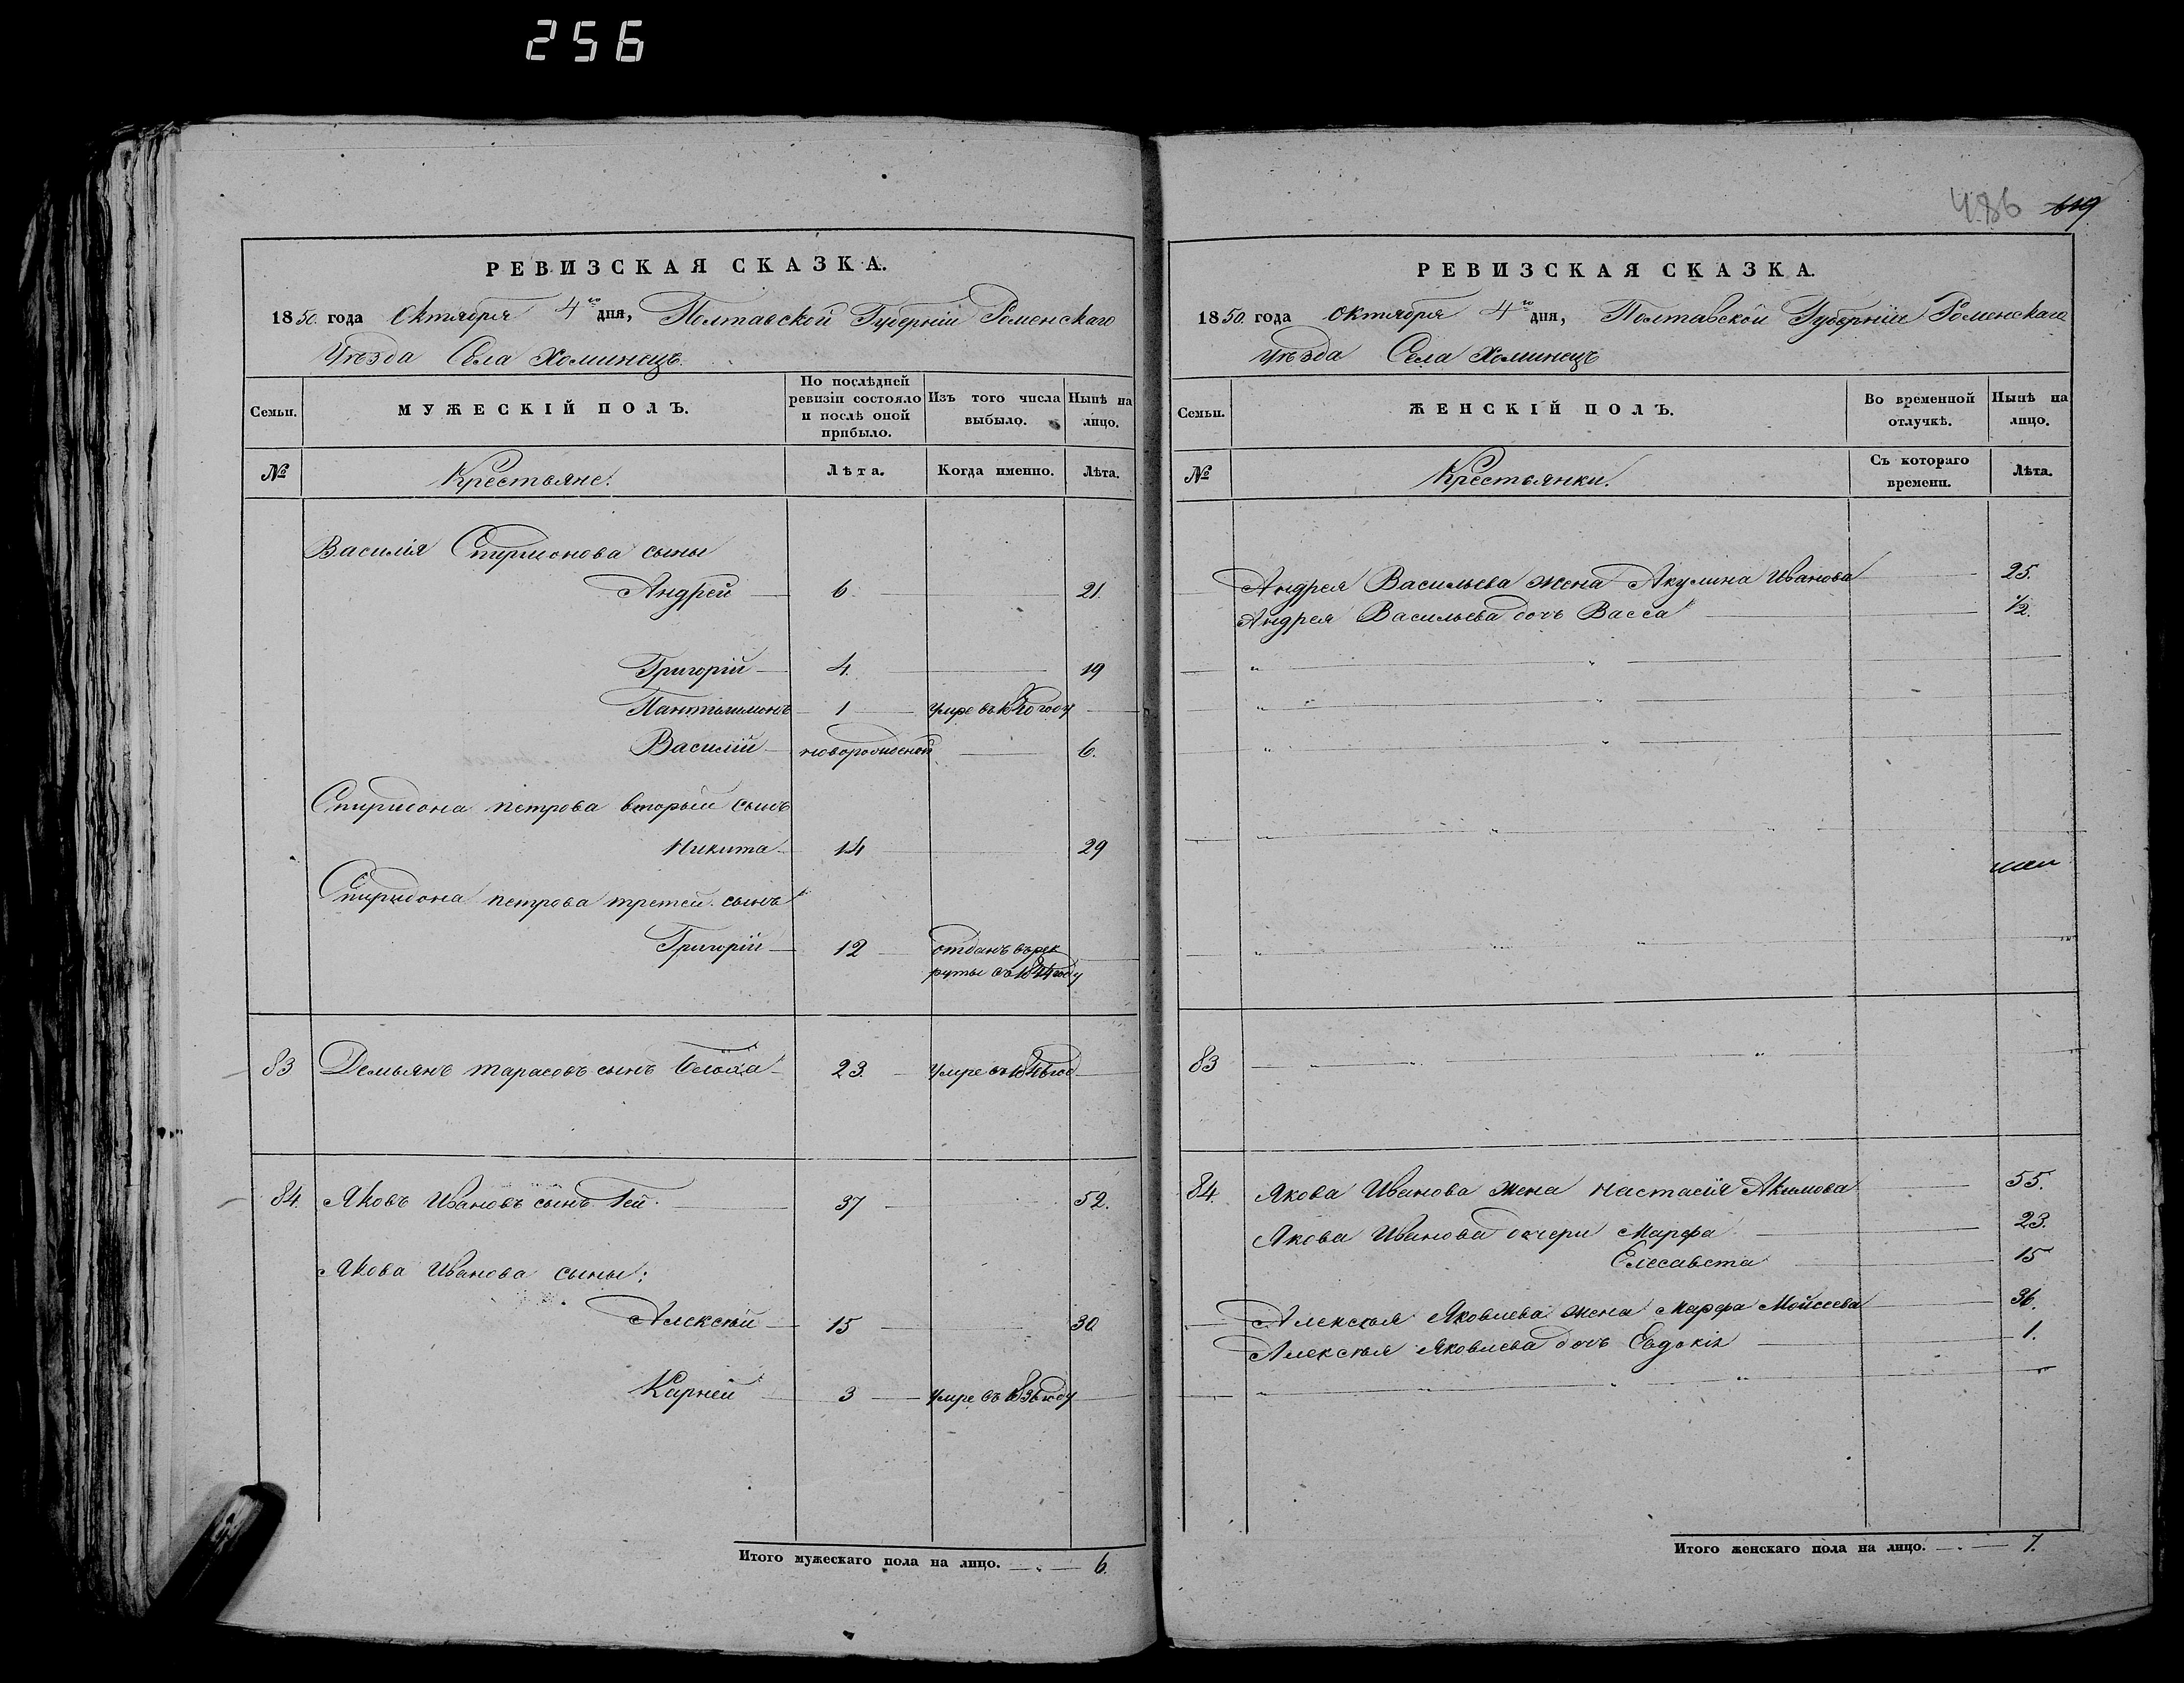 256
486 619
РЕВИЗСКАЯ СКАЗКА.
1850. года Октября 4го дня, Полтавской Губерніи Роменскаго
Уѣзда Села Хоминецъ.
Семьи.
МУЖЕСКІЙ ПОЛЪ.
По послѣдней ревизіи состояло и послѣ оной прибыло.
Изъ того числа выбыло.
Нынѣ на лицо.
№
Крестьяне.
Лѣта.
Когда именно.
Лѣта.
Василія Спиридонова сыны
Андрей 6 21.
Григорій 4. 19
Пантилимонъ 1 умре въ 1840 году
Василій новорожденный 6.
Спиридона петрова вторый сынъ
Никита 14 29
Спиридона петрова третей сынъ
Григорій 12 отданъ въ рек
руты въ 1844 году
83 Демьянъ тарасовъ сынъ 23. умре въ 1846 год
84. Яковъ Ивановъ сынъ Гей. 37 52.
Якова Иванова сыны:
Алексѣй 15 30
Карней 3 умре въ 1836 году
Итого мужескаго пола на лицо. 6.
РЕВИЗСКАЯ СКАЗКА.
1850. года Октября 4го дня, Полтавской Губерніи Роменскаго
Уѣзда Села Хоминецъ
Семьи.
ЖЕНСКІЙ ПОЛЪ.
Во временной отлучкѣ.
Нынѣ на лицо.
№
Крестьянки.
Съ котораго времени.
Лѣта.
Андрея Васильева жена Акулина Иванова 25.
Андрея Васильева дочь Васса 1/2.
83
84. Якова Иванова жена Настасія Акимова 55.
Якова Иванова дочери Марфа 23.
Елесавета 15
Алексѣя Яковлева жена Марфа Мойсеева 36.
Алексѣя Яковлева дочь Евдокія 1.
Итого женскаго пола на лицо. 7.